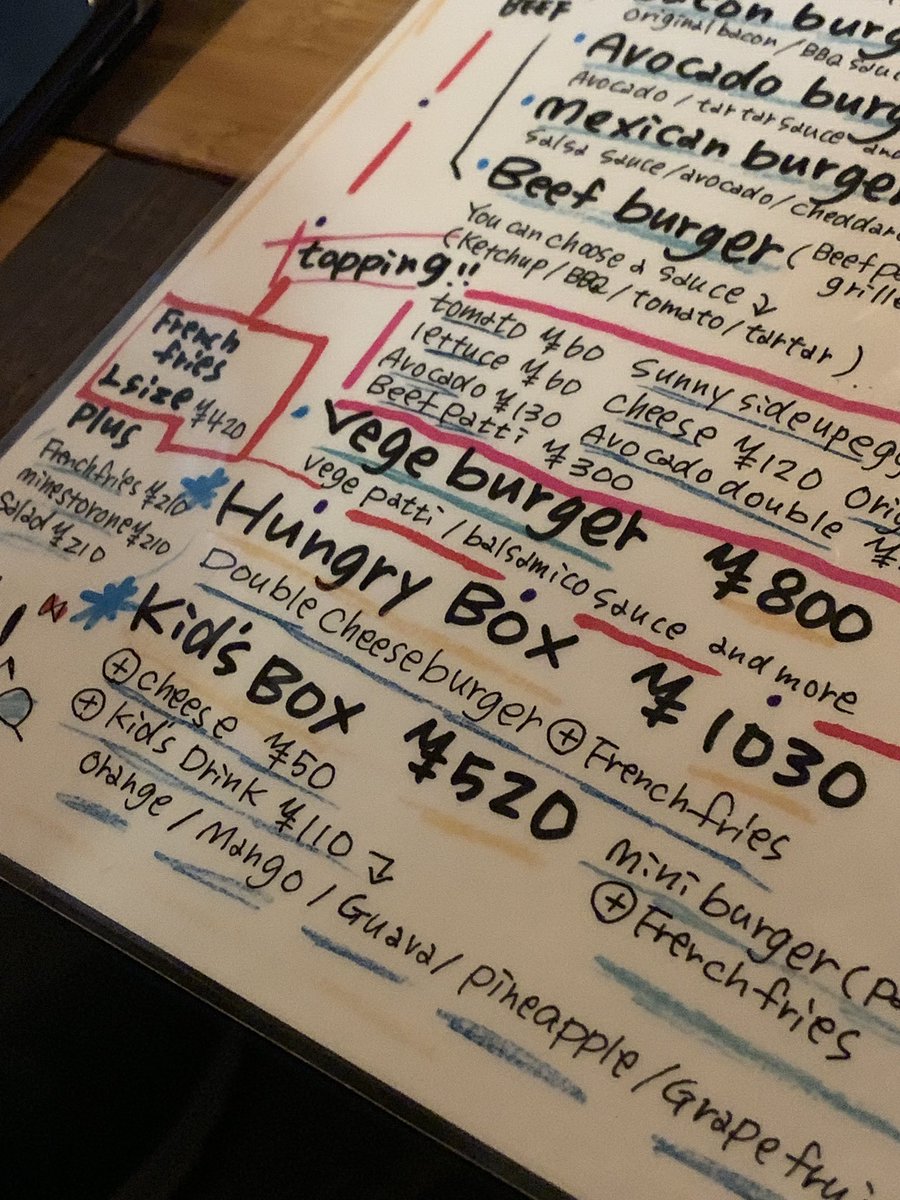 BEEF
original bacon / BBQ sauc
Avocado burg
Avocado / tartar sauce and
Mexican burger
salsa sauce/avocado/cheddar
Beef burger (Beef pa
grille
You can choose a sauce
(Ketchup/BBQ/tomato/tartar)
topping!!
tomato ¥60 Sunny side up egg
lettuce ¥60 Cheese ¥120
Avocado ¥130 Avocado double
Beef patti ¥300
French
fries
L size ¥420
plus
French fries ¥210
minestorone ¥210
Salad ¥210
Vege burger ¥800
vege patti / balsamico sauce and more
Hungry Box ¥1030
Double cheese burger + French fries
Kid's Box ¥520
mini burger (pa
+ French fries
+ cheese ¥50
+ Kid's Drink ¥110
orange / Mango / Guava / pineapple / Grapefrui